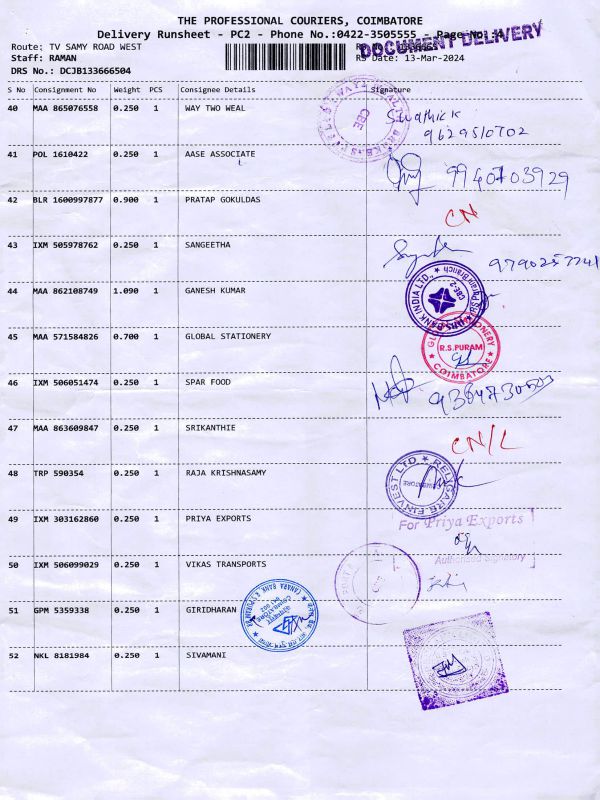 THE PROFESSIONAL COURIERS, COIMBATORE
Delivery Runsheet - PC2 - Phone No.:0422-3505555 - Page No.:4
DOCUMENT DELIVERY
Route: TV SAMY ROAD WEST
Staff: RAMAN
RS Date: 13-Mar-2024
DRS No.: DCJB133666504
S No Consignment No Weight PCS Consignee Details Signature
40 MAA 865076558 0.250 1 WAY TWO WEAL
CBE
Swathick
9629510702
41 POL 1610422 0.250 1 AASE ASSOCIATE
9940703929
42 BLR 1600997877 0.900 1 PRATAP GOKULDAS
CN
43 IXM 505978762 0.250 1 SANGEETHA
44 MAA 862108749 1.090 1 GANESH KUMAR
BANK INDIA LTD.,
CBE-2
45 MAA 571584826 0.700 1 GLOBAL STATIONERY
R.S.PURAM
COIMBATORE
46 IXM 506051474 0.250 1 SPAR FOOD
47 MAA 863609847 0.250 1 SRIKANTHIE
CN/L
48 TRP 590354 0.250 1 RAJA KRISHNASAMY
RELIGARE FINVEST LTD
49 IXM 303162860 0.250 1 PRIYA EXPORTS
For Priya Exports
Authorised Signatory
50 IXM 506099029 0.250 1 VIKAS TRANSPORTS
51 GPM 5359338 0.250 1 GIRIDHARAN
CANARA BANK
52 NKL 8181984 0.250 1 SIVAMANI